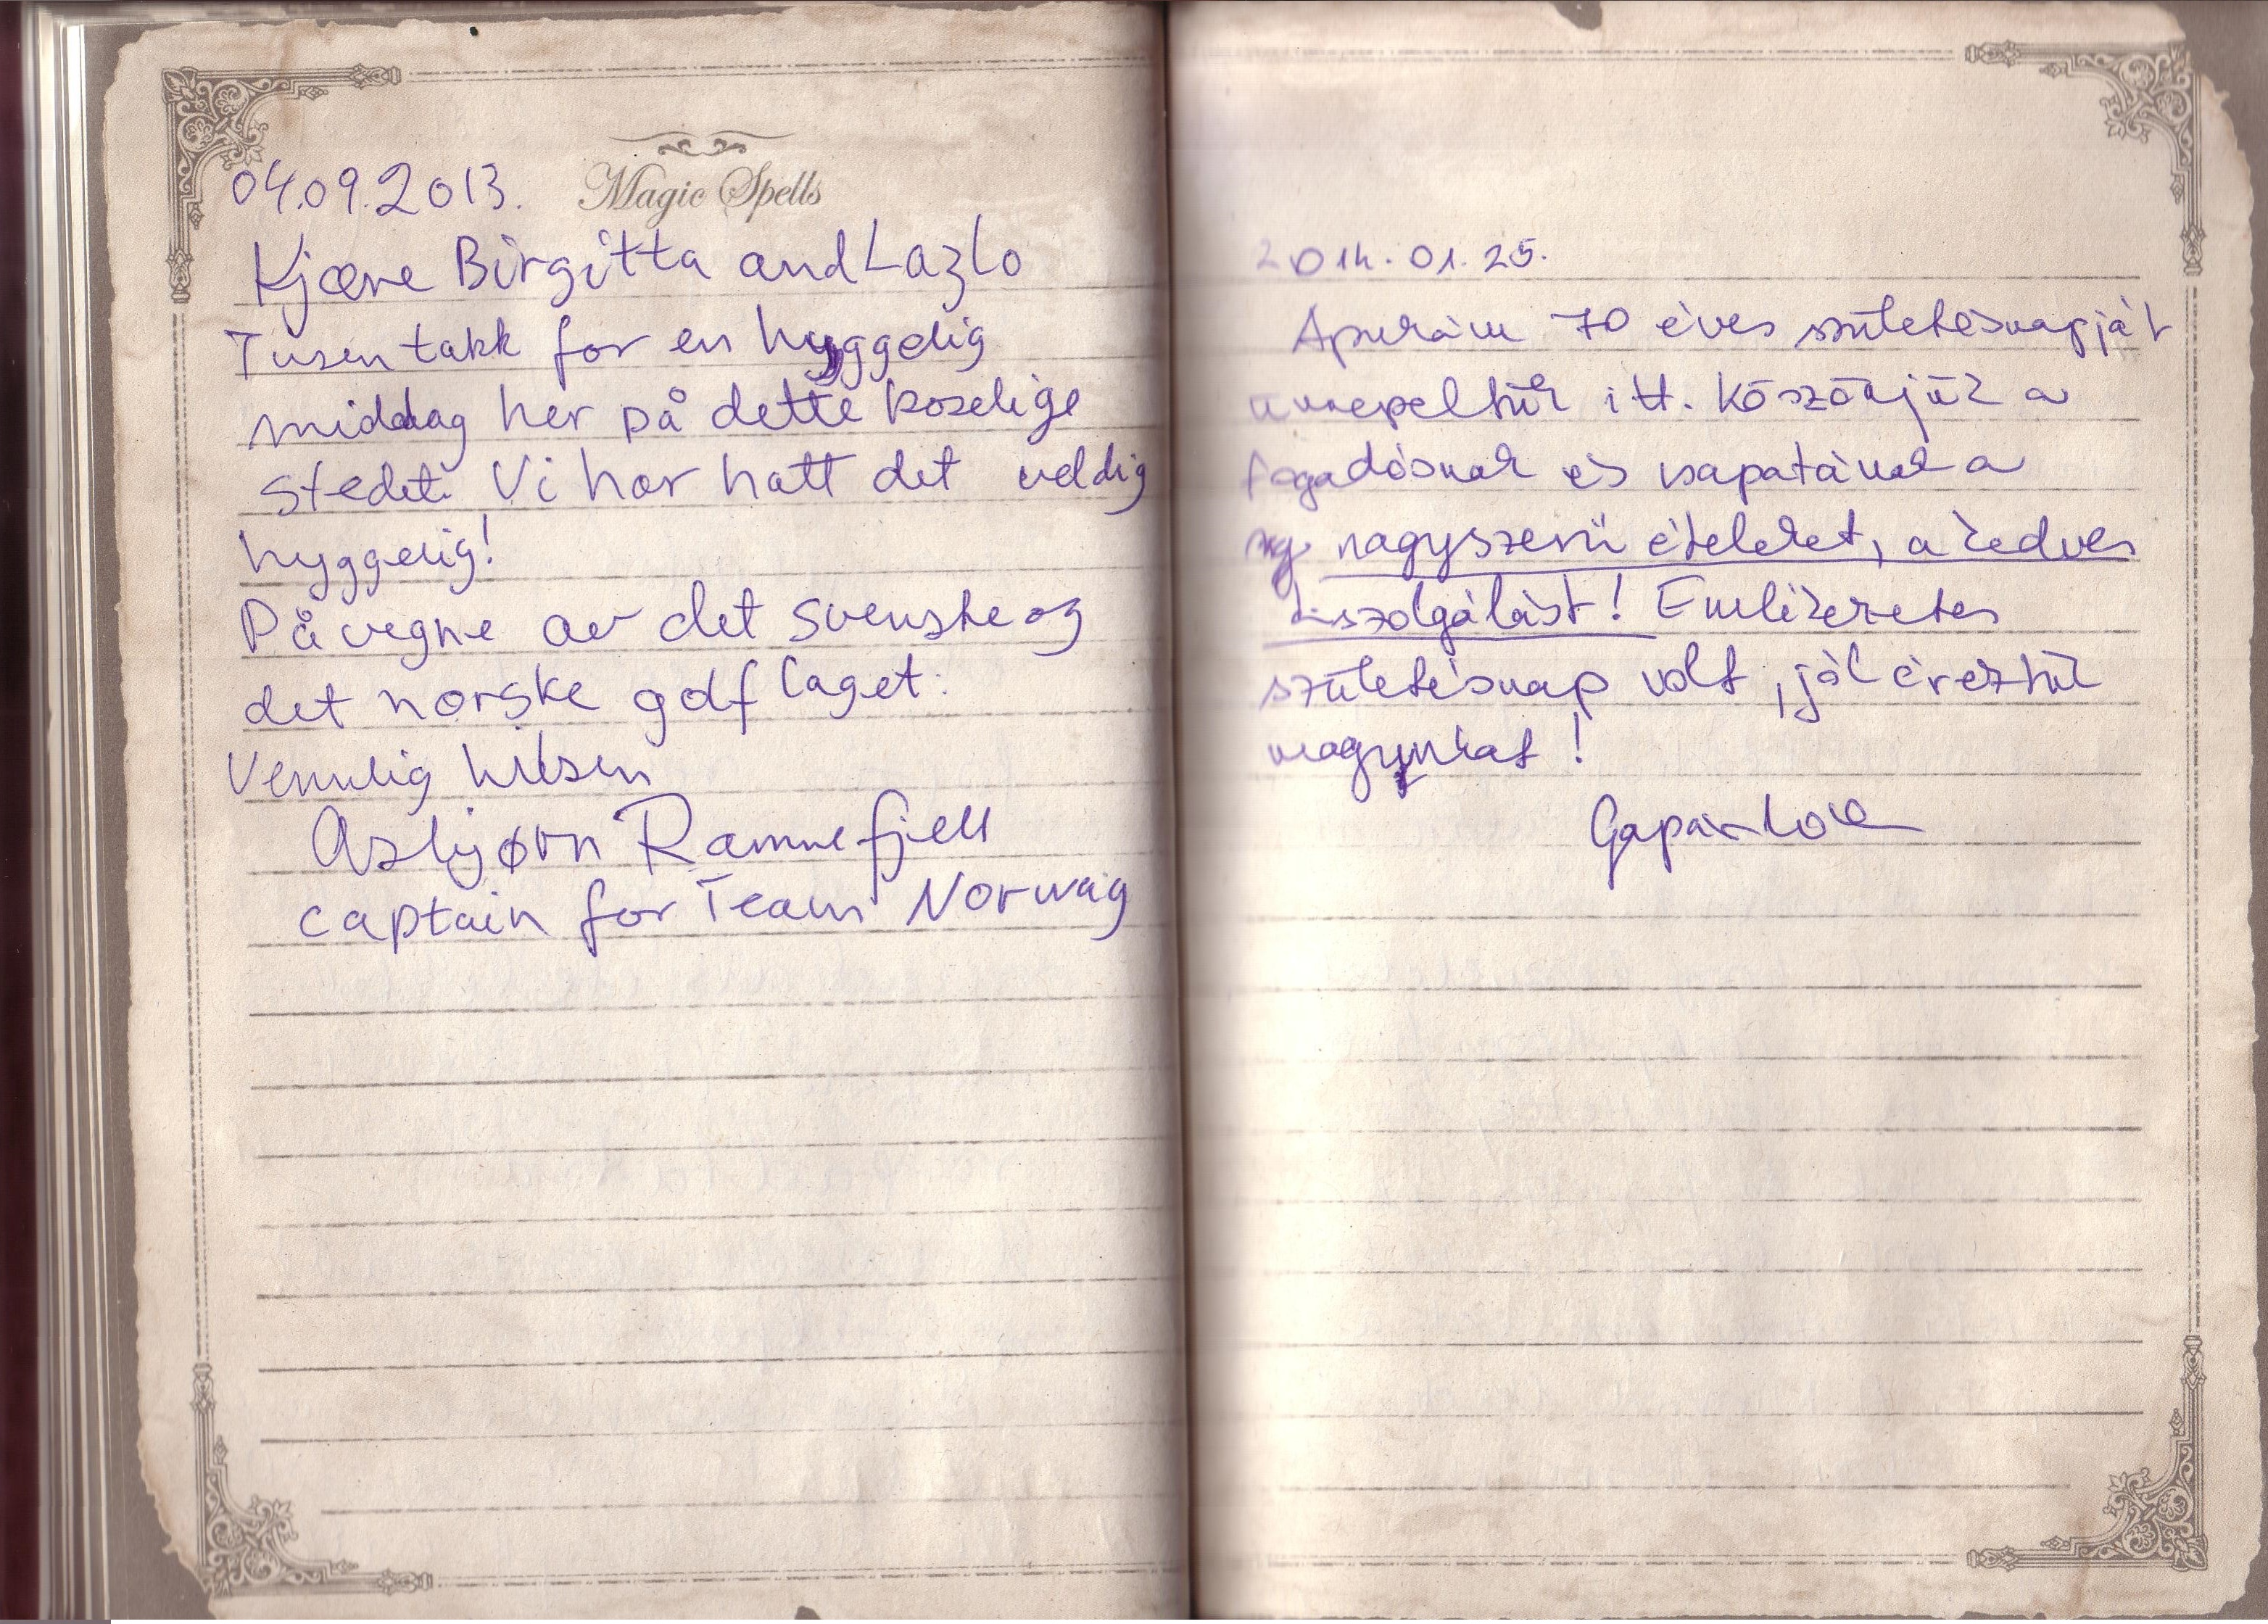 Magic Spells
04.09.2013.
Kjære Birgitta and Lazlo
Tusen takk for en hyggelig
middag her på dette koselige
stedet. Vi har hatt det veldig
hyggelig!
På vegne av det svenske og
det norske golf laget:
Vennlig hilsen
Asbjørn Ramnefjell
captain for Team Norway
2014. 01. 25.
Apukám 70 éves születésnapját
ünnepeltük itt. Köszönjük a
fogadósnak és csapatának a
nagyszerű ételeket, a kedves
kiszolgálást! Emlékezetes
születésnap volt, jól éreztük
magunkat!